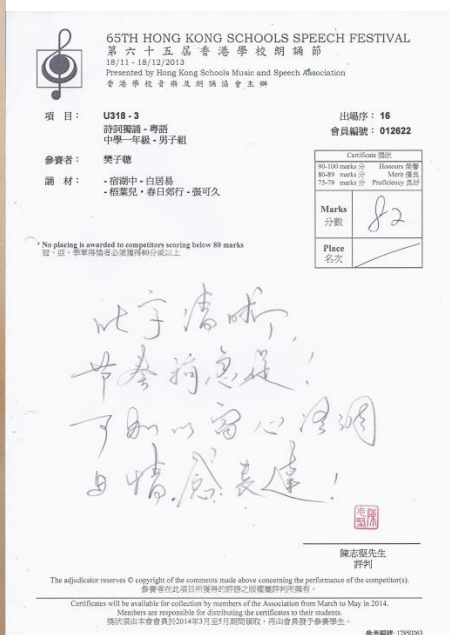 65TH HONG KONG SCHOOLS SPEECH FESTIVAL
第六十五屆香港學校朗誦節
18/11 - 18/12/2013
Presented by Hong Kong Schools Music and Speech Association
香港學校音樂及朗誦協會主辦
項 目： U318 - 3
詩詞獨誦 - 粵語
中學一年級 - 男子組
出場序： 16
會員編號： 012622
參賽者： 樊子聰
誦 材： - 宿湖中 - 白居易
- 梧葉兒‧春日郊行 - 張可久
Certificate 獎狀
90-100 marks 分 Honours 榮譽
80-89 marks 分 Merit 優良
75-79 marks 分 Proficiency 良好
Marks 分數 82
Place 名次
* No placing is awarded to competitors scoring below 80 marks
冠、亞、季軍得獎者必須獲得80分或以上
吐字清晰，
节奏稍急促！
可加以留心语调
与情感表達！
陳志堅先生
評判
The adjudicator reserves © copyright of the comments made above concerning the performance of the competitor(s).
參賽者在此項目所獲得的評語之版權屬評判所擁有。
Certificates will be available for collection by members of the Association from March to May in 2014.
Members are responsible for distributing the certificates to their students.
獎狀須由本會會員於2014年3月至5月期間領取，再由會員發予參賽學生。
參考編號: 17850263